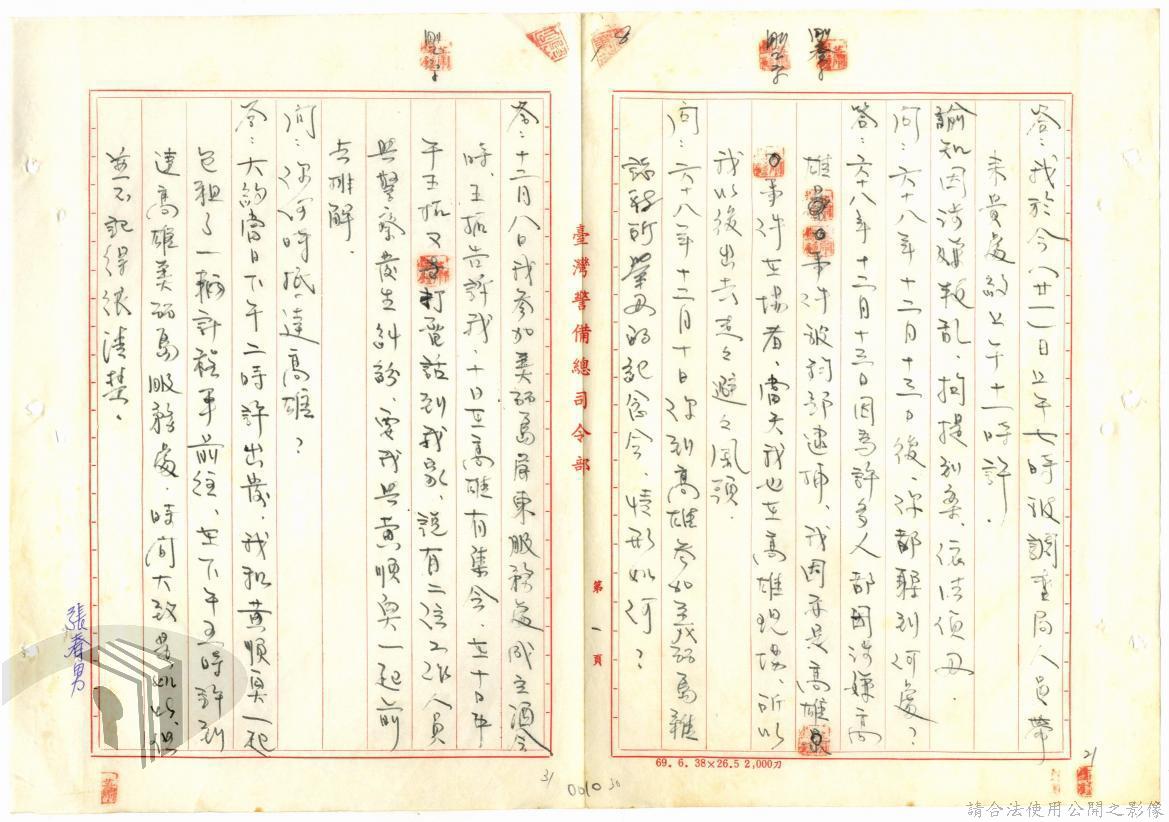 答：我於今（廿一）日上午七時被調查局人員帶
來貴處約上午十一時許．
諭知因涉嫌叛乱，拘提到案，依法偵丑．
问：六十八年十二月十三日後，你都躱到何處？
答：六十八年十二月十三日因為許多人都因涉嫌高
雄事件被約部逮捕，我因亦是高雄
事件在場者，當天我也在高雄現場，所以
我以後出去走走避避風頭．
问：六十八年十二月十日你到高雄参加美麗島雜
誌社所舉办的紀念会，情形如何？
答：十二月八日我参加美麗島屏東服務處成立酒会
時，王拓告訴我，十日在高雄有集会，在十日中
午王拓又打電話到我家，說有二位工作人員
與警察發生糾紛，要我與黃順興一起前
去排解．
问：你何時抵達高雄？
答：大約當日下午二時許出發，我和黃順興一起
包租了一輛計程車前往，在下午五時許到
達高雄美麗島服務處，時间大致是如此，但
並不記得很清楚．
張春男
臺灣警備總司令部
第一頁
69. 6. 38×26.5 2,000刀
21
31
0010
30
請合法使用公開之影像